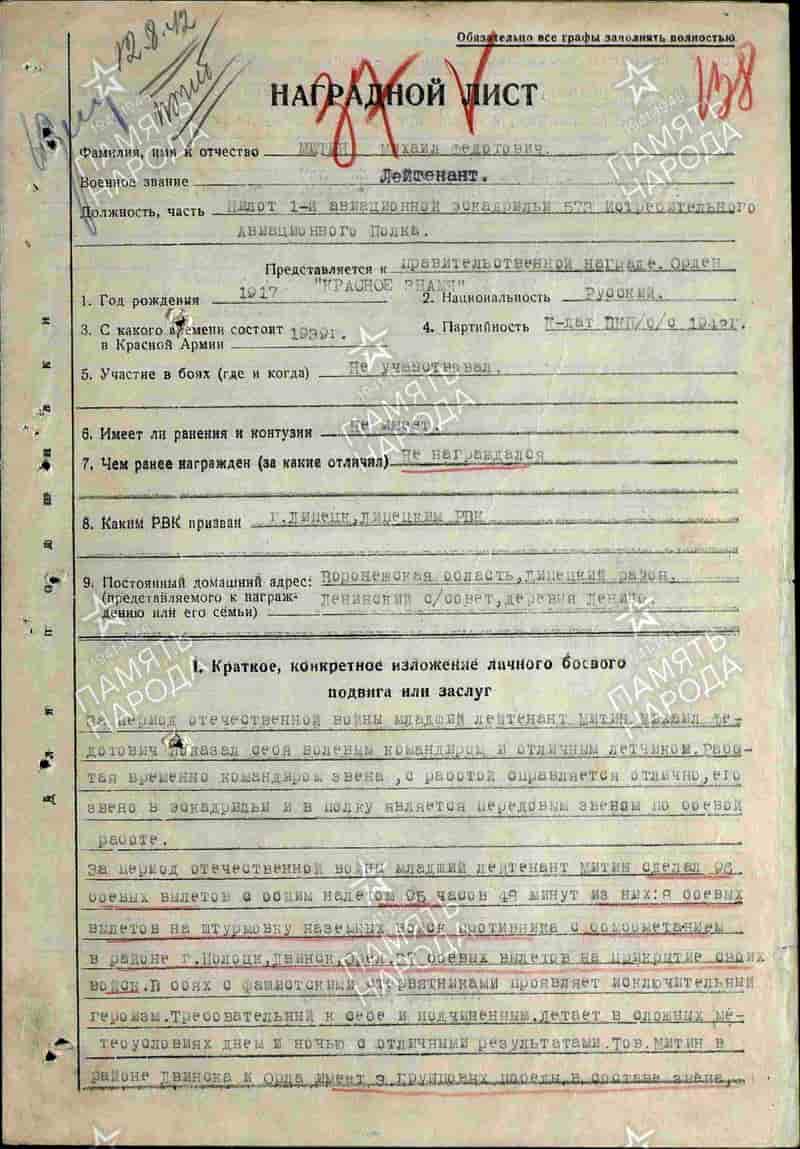 12.8.42
погиб
Обязательно все графы заполнять полностью
138
НАГРАДНОЙ ЛИСТ
Фамилия, имя и отчество МИТИН Михаил Федотович.
Военное звание Лейтенант.
Должность, часть Пилот 1-й авиационной эскадрильи 573 Истребительного
Авиационного Полка.
Представляется к правительственной награде. Орден
"КРАСНОЕ ЗНАМЯ"
1. Год рождения 1917 2. Национальность Русский.
3. С какого времени состоит 1939г. 4. Партийность К-дат ВКП/б/с 1942г.
в Красной Армии
5. Участие в боях (где и когда) Не участвовал.
6. Имеет ли ранения и контузии Не имеет.
7. Чем ранее награжден (за какие отличия) Не награждался
8. Каким РВК призван г.Липецк, Липецким РВК
9. Постоянный домашний адрес: Воронежская область, Липецкий район.
(представляемого к награж- Ленинский с/совет, деревня Ленино
дению или его семьи)
Для пшивки
1. Краткое, конкретное изложение личного боевого
подвига или заслуг
За период отечественной войны младший лейтенант Митин Михаил Фе-
дотович показал себя волевым командиром и отличным летчиком. Рабо-
тая временно командиром звена, с работой справляется отлично, его
звено в эскадрильи и в полку является передовым звеном по боевой
работе.
За период отечественной войны младший лейтенант Митин сделал
боевых вылетов с общим налетом часов минут из них: боевых
вылетов на штурмовку наземных войск противника с бомбометанием
в районе г.Полоцк, Двинск, боевых вылетов на прикрытие своих
войск. В боях с фашистскими стервятниками проявляет исключительный
героизм. Требовательный к себе и подчиненным. Летает в сложных ме-
теоусловиях днем и ночью с отличными результатами. Тов. Митин в
районе Двинска и имеет 3 групповых победы, в составе звена,
ПАМЯТЬ НАРОДА